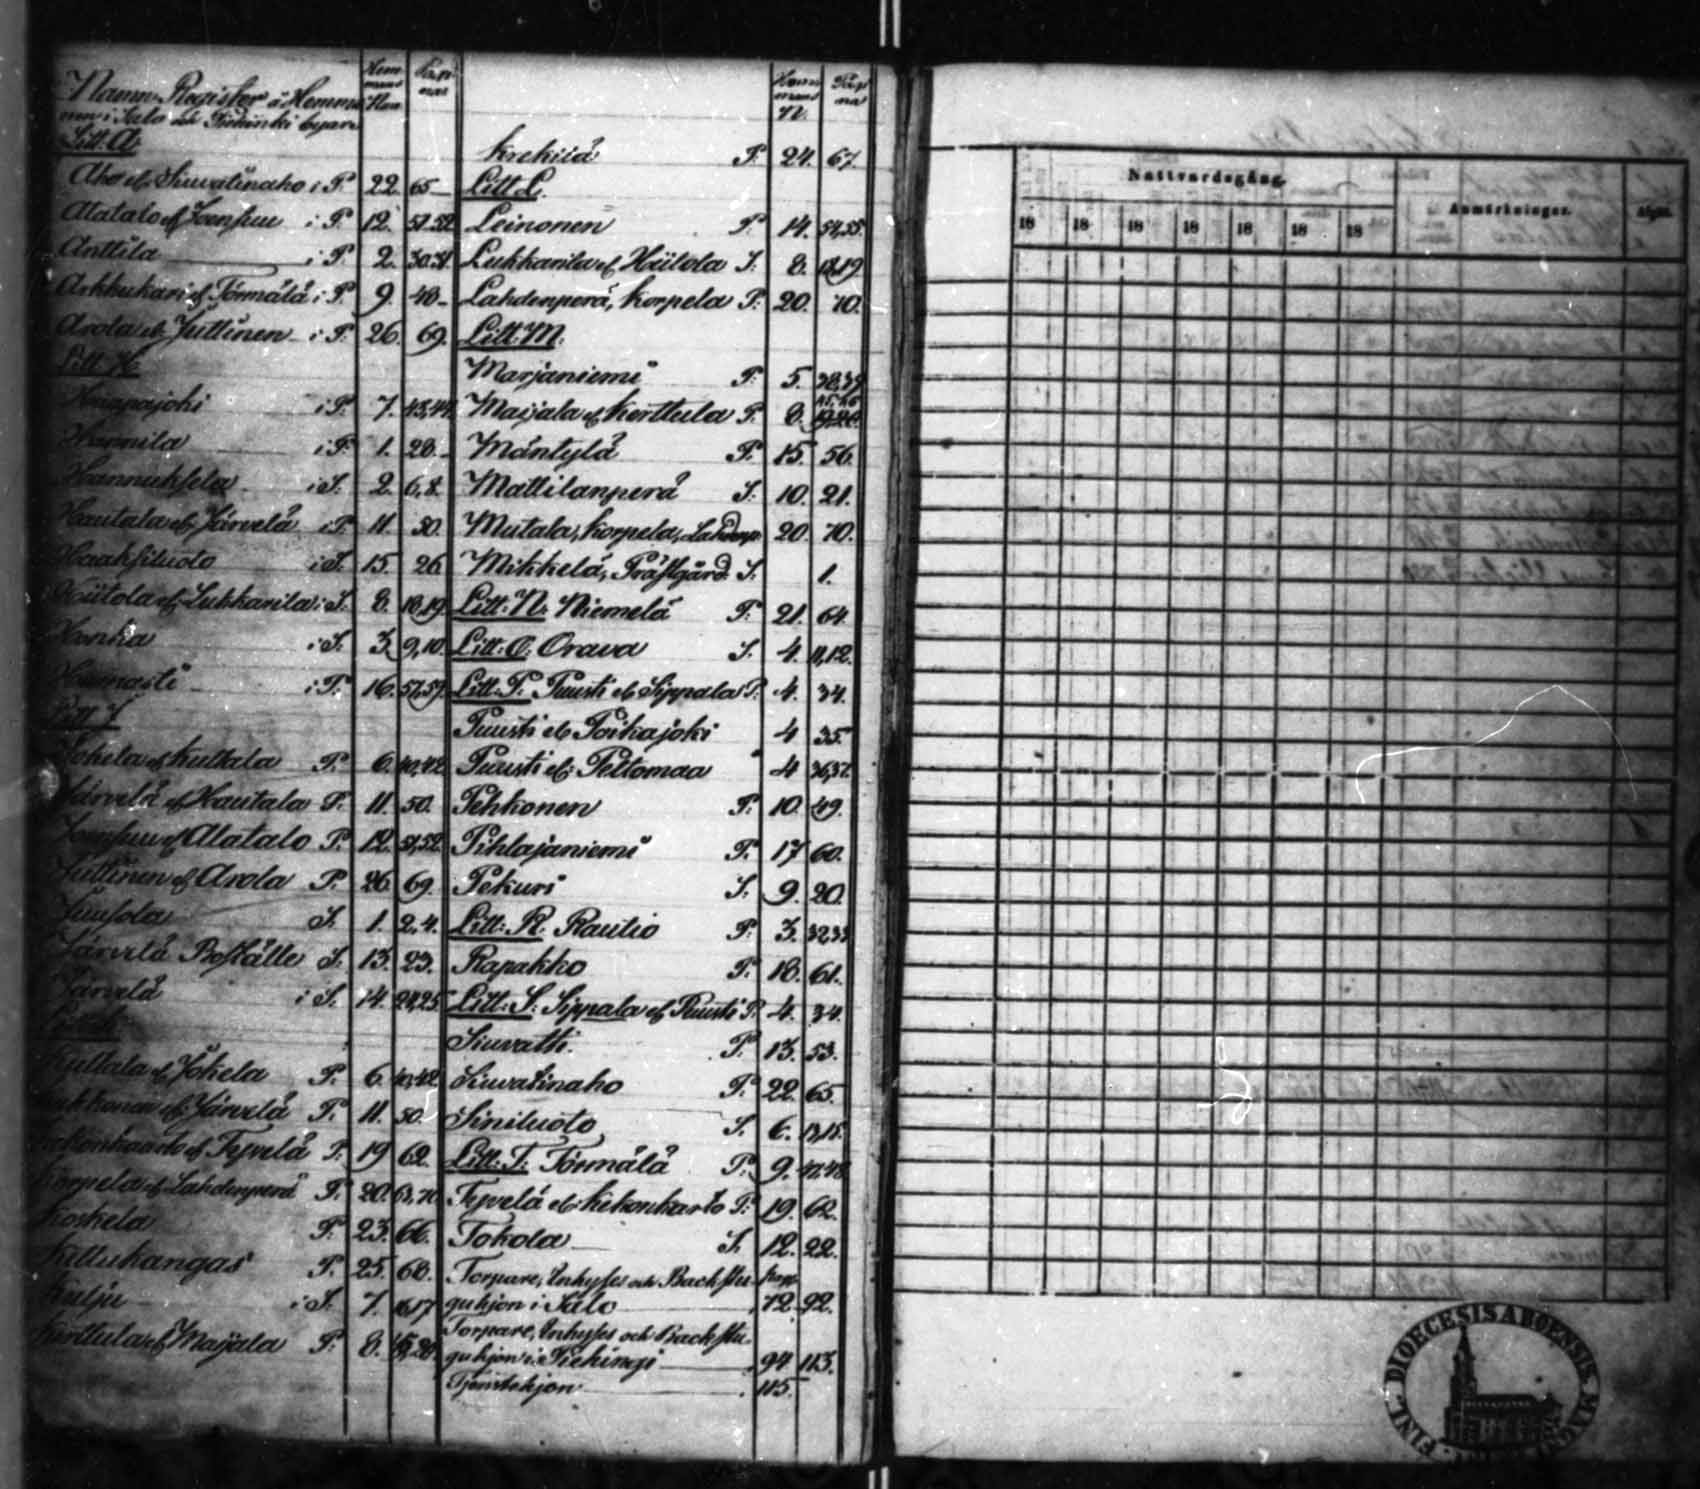 Namn Register å Hemma-
nen i Salo och Piehinki byar.
Hemmans Nro
Pagina
Litt: A.
Aho et Siuvatinaho i P. 22. 65
Alatalo et Joensuu i P. 12. 51.52
Anttila i P. 2. 30.31
Arkkukari et Törmälä i P. 9. 48
Arola et Juttinen i P. 26. 69.
Litt H.
Haapajoki i P. 7. 43,44
Hannila i P. 1. 28.
Hannuksela i S. 2. 6,8.
Hautala et Järvelä i P. 11. 50.
Haaksiluoto i S. 15. 26
Hiitola et Lukkarila i S. 8. 18,19
Honka i S. 3. 9,10.
Hurnasti i P. 16. 57,59
Litt J
Jokela et Kultala P. 6. 40,42
Järvelä et Hautala P. 11. 50.
Joensuu et Alatalo P. 12. 51,52.
Juttinen et Arola P. 26. 69.
Juusola S. 1. 2,4.
Järvelä Boställe S. 13. 23.
Järvelä i S. 14. 24,25
Kultala et Jokela P. 6. 40,42
et Järvelä P. 11. 50.
et Tyvelä P. 19 62.
Korpela et Lahdenperä P. 20. 63,70
Koskela P. 23. 66.
Kittukangas P. 25. 68.
Kulju i S. 7. 16,17
Kerttula et Maijala P. 8.
Hemmans N.
Pagina
Krekilä P. 24. 67.
Litt L.
Leinonen P. 14. 54,55.
Lukkarila et Hiitola S. 8. 18,19
Lahdenperä, Korpela P. 20. 70.
Litt: M.
Marjaniemi P. 5. 38,39
Maijala et Kerttula P. 8.
Mäntylä P. 15. 56.
Mattilanperä S. 10. 21.
Mutala, Korpela, Lahdenp. 20. 70.
Mikkelä, Prästgård S. 1.
Litt: N: Niemelä P. 21. 64
Litt: O: Orava S. 4. 11,12.
Litt: P. Puusti et Sippala P. 4. 34.
Puusti et Poikajoki 4 35.
Puusti et Peltomaa " 4 36,37.
Pehkonen P. 10. 49.
Pihlajaniemi P. 17 60.
Pekuri S. 9. 20.
Litt: R. Rautio P. 3. 32,33
Rapakko P. 18. 61.
Litt: S: Sippala et Puusti P. 4. 34.
Siuvatti. P. 13. 53.
Siuvatinaho P. 22. 65.
Siniluoto S. 6.
Litt: T. Törmälä P. 9. 47,48
Tyvelä et Kekonkarto P. 19. 62.
Tokola S. 12. 22.
Torpare, Inhyses och Backstu-
guhjon i Salo 72-92.
Torpare, Inhyses och Backstu-
guhjon i Piehingi 94 113.
Tjenstehjon 115.
Nattvardsgång.
Anmärkningar.
18 18 18 18 18 18 18
FINL. DIOECESIS ABOENSIS MAGNI